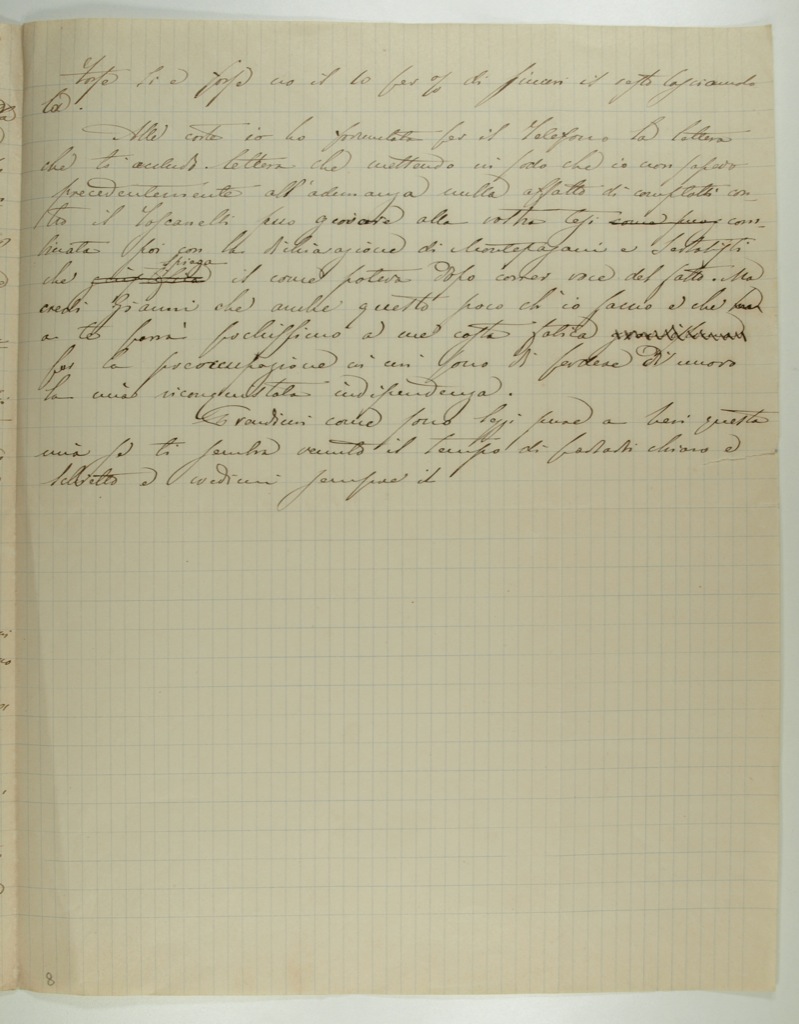 forse si e forse no il 10 per % di sinceri il resto lasciamola
là.
Alle corte io ho formulata per il Telefono la lettera
che ti accludo. Lettera che mettendo in sodo che io non sapevo
precedentemente all'adunanza nulla affatto di complotti con-
tro il Toscanelli può giovare alla vostra tesi com-
binata poi con la dichiarazione di Montepagani e
che spiega il come poteva dopo correr voce del fatto. Ma
credi Gianni che anche questo poco ch'io faccio e che
a te parrà pochissimo a me costa fatica
per la preoccupazione in cui sono di perdere di nuovo
la mia riconquistata indipendenza.
Prendimi come sono leggi pure a Beri questa
mia se ti sembra venuto il tempo di parlarti chiaro e
schietto e credimi sempre il
8